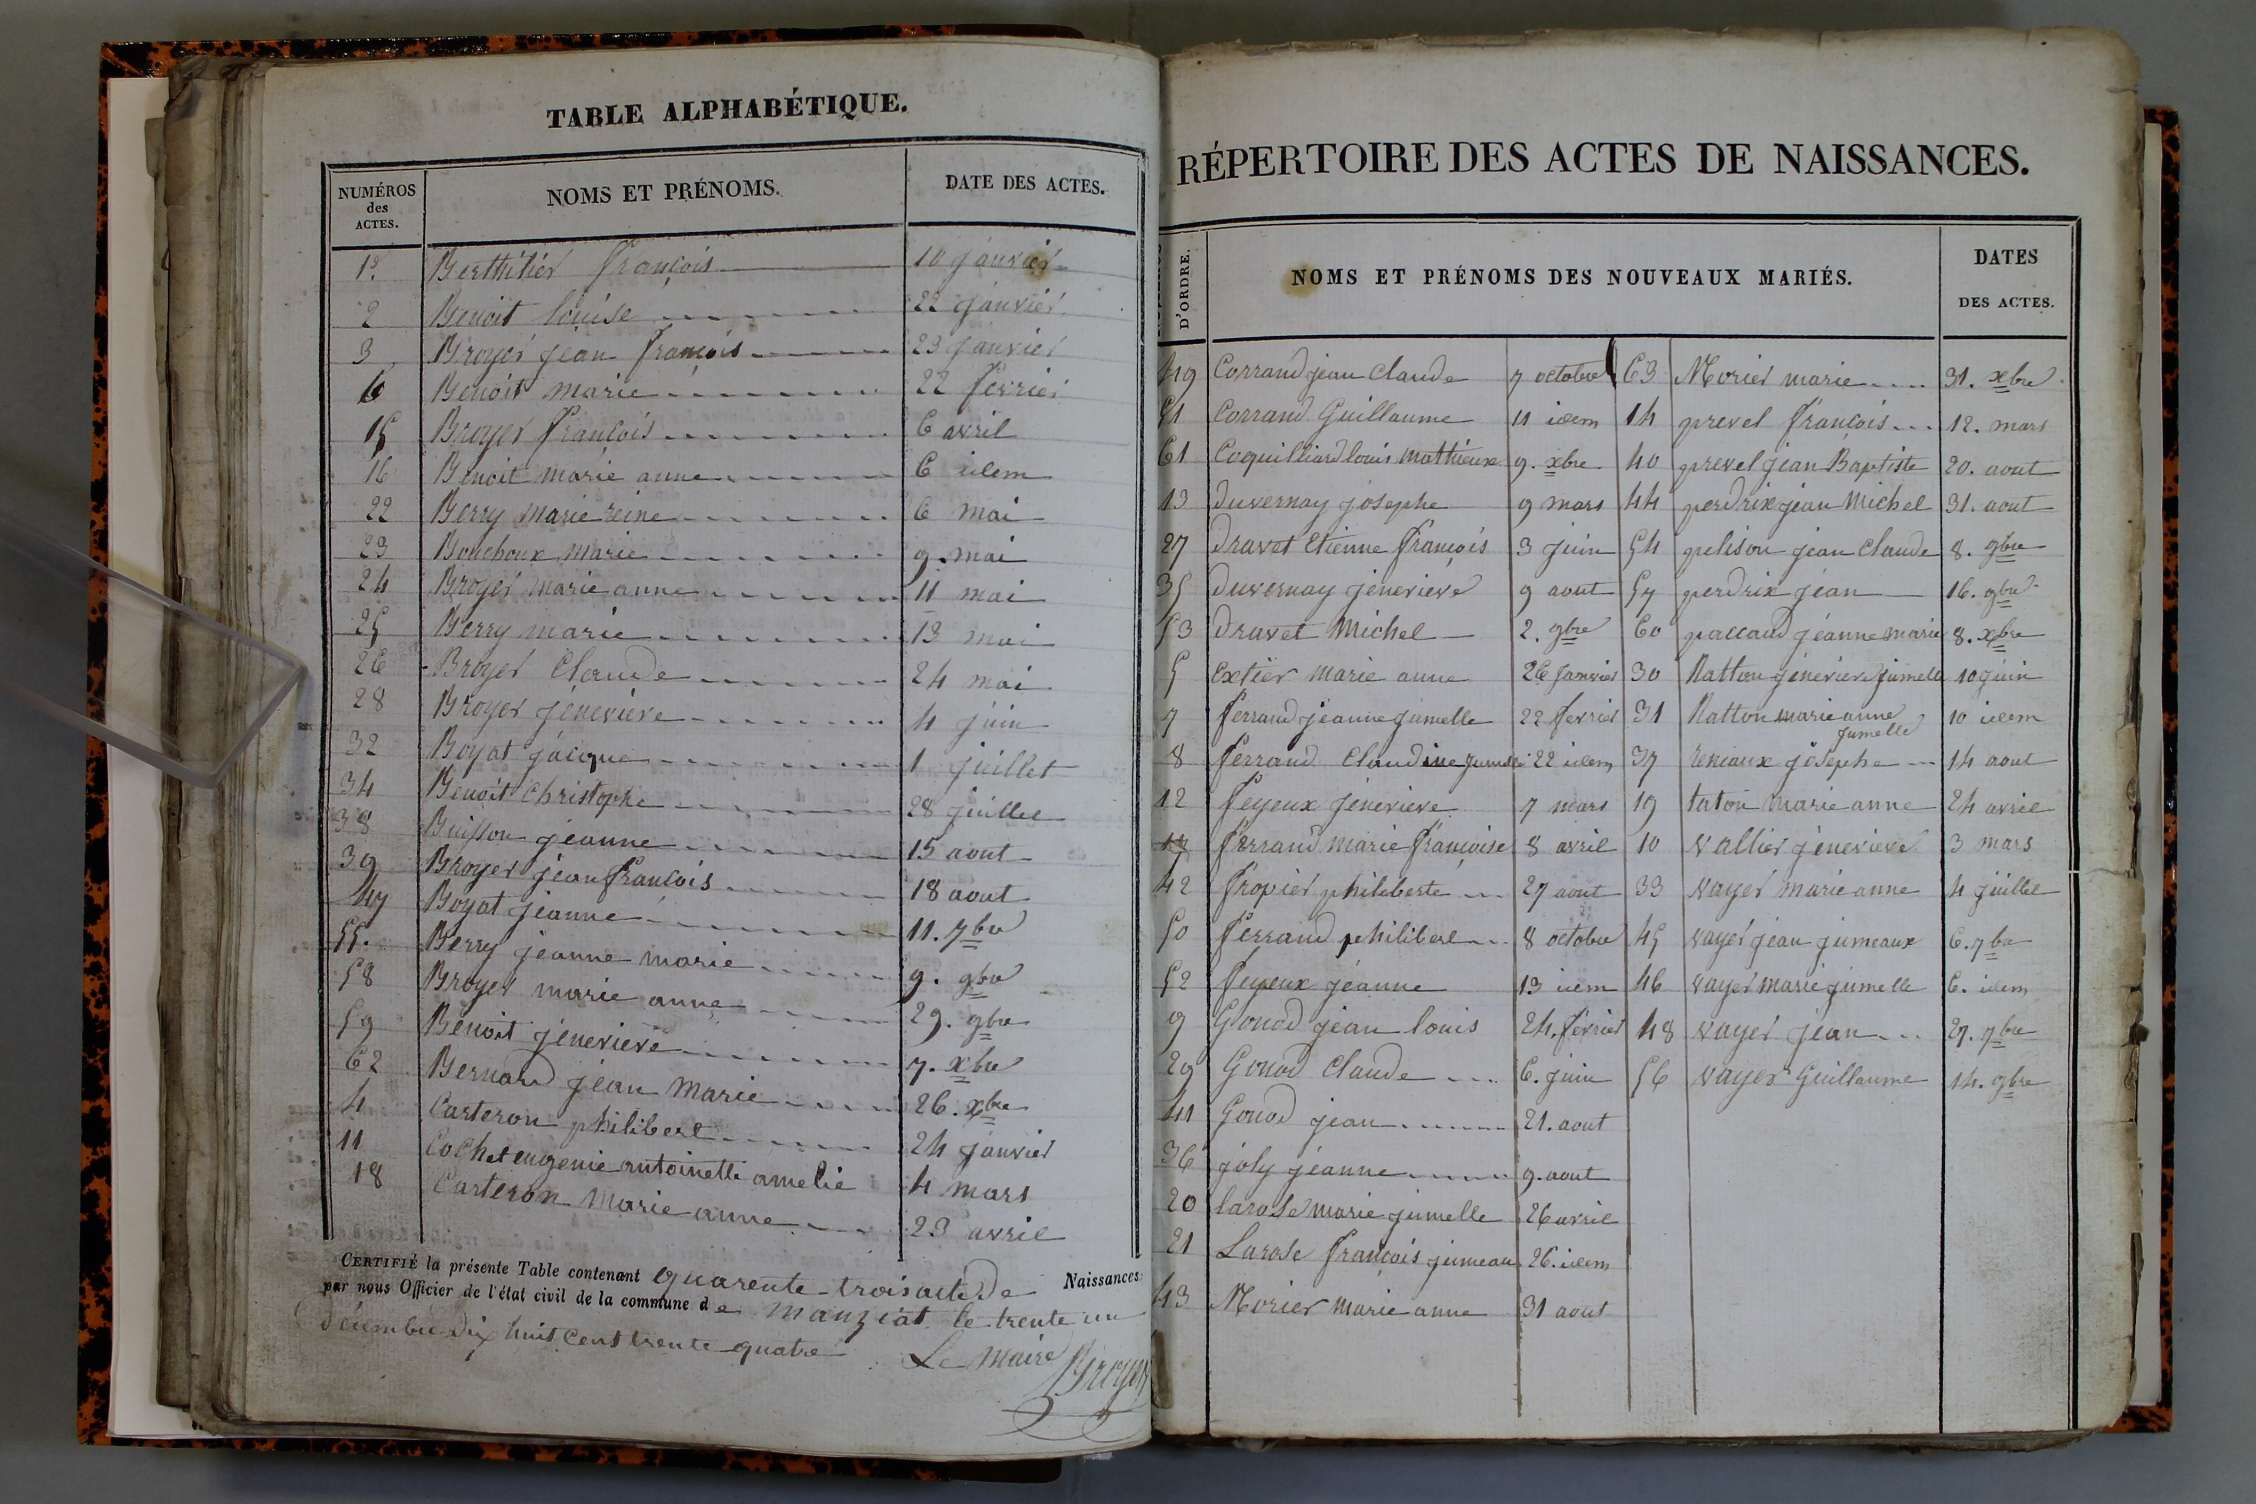 TABLE ALPHABÉTIQUE.
NUMÉROS des ACTES. NOMS ET PRÉNOMS. DATE DES ACTES.
1. Berthilier françois 10 janvier
2 Benoit louise 22 janvier
3 Broyer jean françois 23 janvier
6 Benoit marie 22 fevrier
15 Broyer françois 6 avril
16 Benoit marie anne 6 idem
22 Berry marie reine 6 mai
23 Bouchoux marie 9. mai
24 Broyer marie anne 11 mai
25 Berry marie 13 mai
26 Broyer Claude 24 mai
28 Broyer jéneviève 4 juin
32 Boyat jacque 1 juillet
34 Benoit Christophe 28 juillet
38 Buisson jeanne 15 aout
39 Broyer jean françois 18 aout
47 Boyat jeanne 11. 7bre
55. Berry jeanne marie 9. 9bre
58 Broyer marie anne 29. 9bre
59 Benoit jéneviève 7. xbre
62 Bernard jean Marie 26. xbre
4 Carteron philibert 24 janvier
11 Cochet eugenie antoinette amelie 4 mars
18 Carteron Marie anne 23 avril
CERTIFIÉ la présente Table contenant quarente-trois acte de Naissances
par nous Officier de l'état civil de la commune de manziat le trente un
décembre dix huit cent trente quatre Le Maire Broyer
RÉPERTOIRE DES ACTES DE NAISSANCES.
D'ORDRE. NOMS ET PRÉNOMS DES NOUVEAUX MARIÉS. DATES DES ACTES.
49 Corrand jean Claude 7 octobre 63 Morier marie 31. xbre
51 Corrand Guillaume 11 idem 14 prevel françois 12. mars
61 Coquilliard louis mathieux 9. xbre 40 prevel jean Baptiste 20. aout
13 duvernay josephe 9 mars 44 perdrix jean Michel 31. aout
27 dravet Etienne françois 3 juin 54 pelison jean claude 8. 9bre
35 duvernay jéneviève 9 aout 57 perdrix jean 16. 9bre
53 dravet Michel 2. 9bre 60 paccaud jeanne marie 8. xbre
5 extier marie anne 26 janvier 30 Ratton jéneviève jumelle 10 juin
7 ferrand jeanne jumelle 22 fevrier 31 Ratton marie anne jumelle 10 idem
8 ferrand Claudine jumelle 22 idem 37 reniaux josephe 14 aout
12 feyeux jéneviève 7 mars 19 taton marie anne 24 avril
17 ferrand marie françoise 8 avril 10 vallier jéneviève 3 mars
42 fropier philiberte 27 aout 33 vayer marie anne 4 juillet
50 ferrand philibert 8 octobre 45 vayer jean jumeaux 6. 7bre
52 feyeux jéanne 13 idem 46 vayer marie jumelle 6. idem
9 Gonod jean louis 24. fevrier 48 vayer jean 27. 7bre
29 Gonod Claude 6. juin 56 vayer Guillaume 14. 9bre
41 Gonod jean 21. aout
36 joly jéanne 9. aout
20 larose marie jumelle 26 avril
21 Larose françois jumeau 26. idem
43 Morier marie anne 31 aout